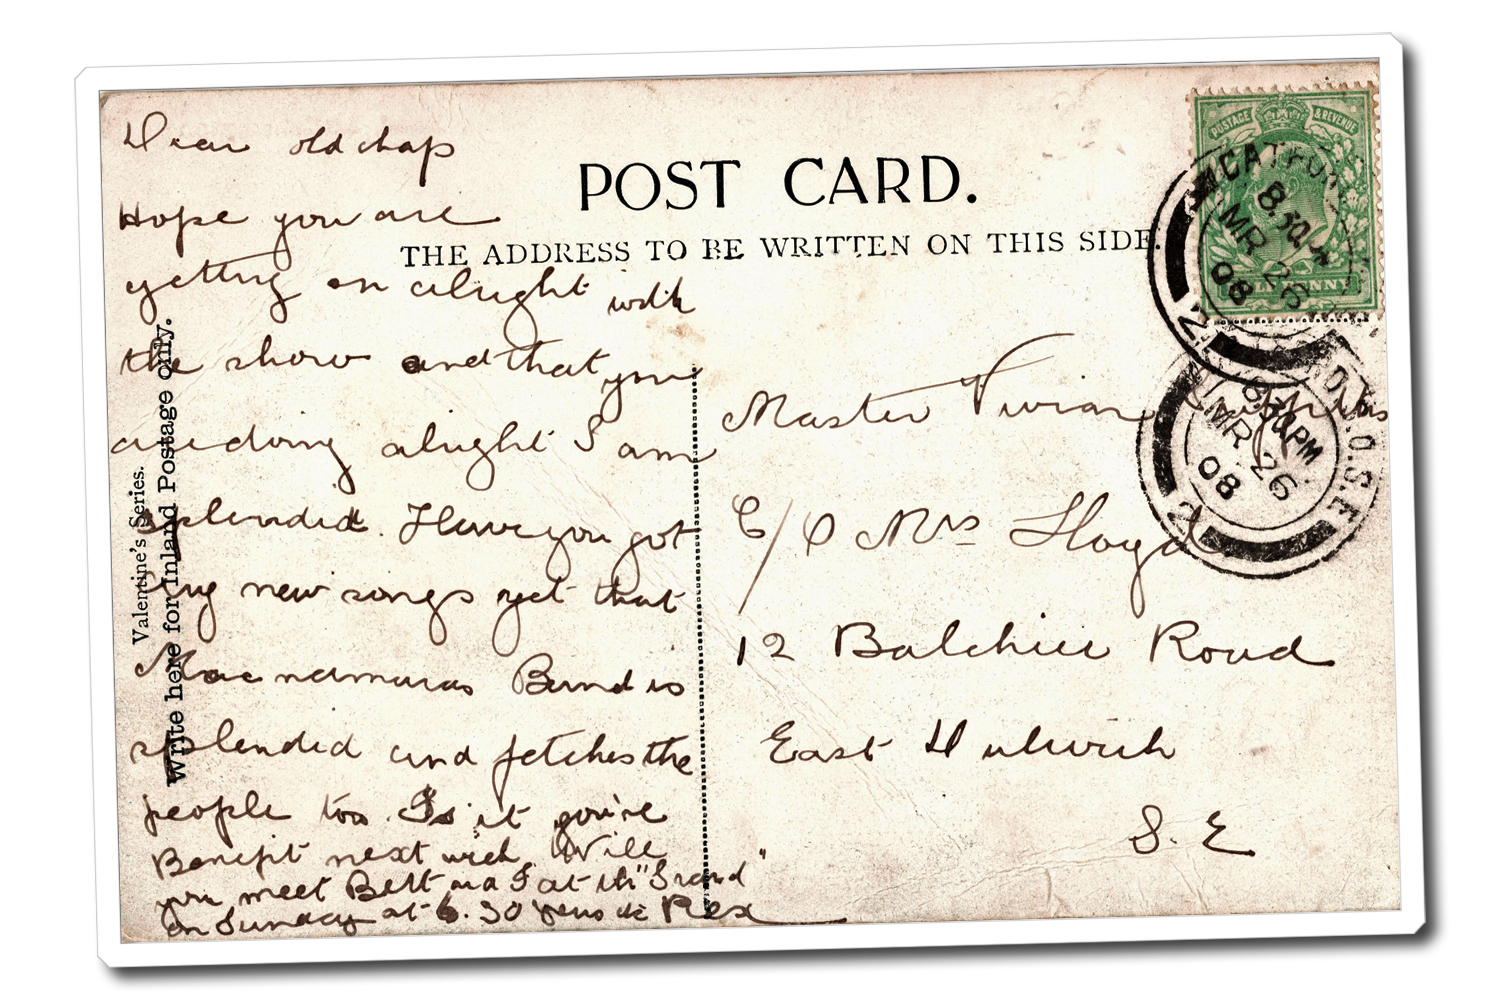 Dear old chap
Hope you are
getting on alright with
the show and that you
are doing alright I am
splendid. Have you got
any new songs yet that
Macnamaras Band is
splendid and fetches the
people too. Is it you're
Benefit next week. Will
you meet Bett and I at the "Grand"
on Sunday at 6.30 Yours etc Rex
Valentine's Series.
Write here for Inland Postage only.
POST CARD.
THE ADDRESS TO BE WRITTEN ON THIS SIDE.
POSTAGE & REVENUE
HALFPENNY
CATFORD
8.30PM
MR 26
08
2
8.30PM
MR 26
08
2
S.O.S.E
Master Vivian
C/O Mrs Lloyd
12 Balchier Road
East Dulwich
S.E